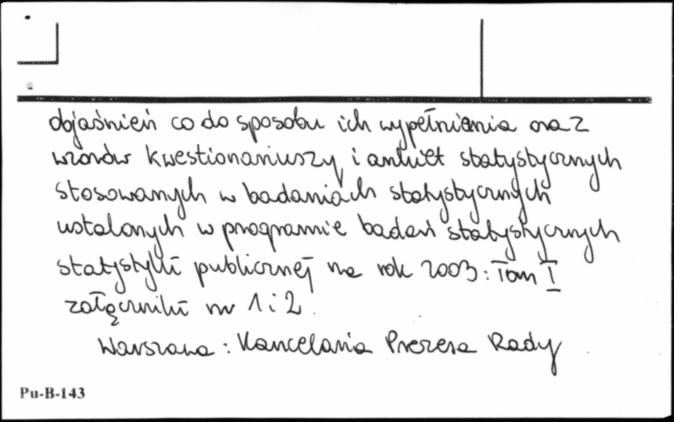 objaśnień co do sposobu ich wypełniania oraz
wzorów kwestionariuszy i ankiet statystycznych
stosowanych w badaniach statystycznych
ustalonych w programie badań statystycznych
statystyki publicznej na rok 2003: Tom I
załączniki nr 1 i 2.
Warszawa: Kancelaria Prezesa Rady
Pu-B-143